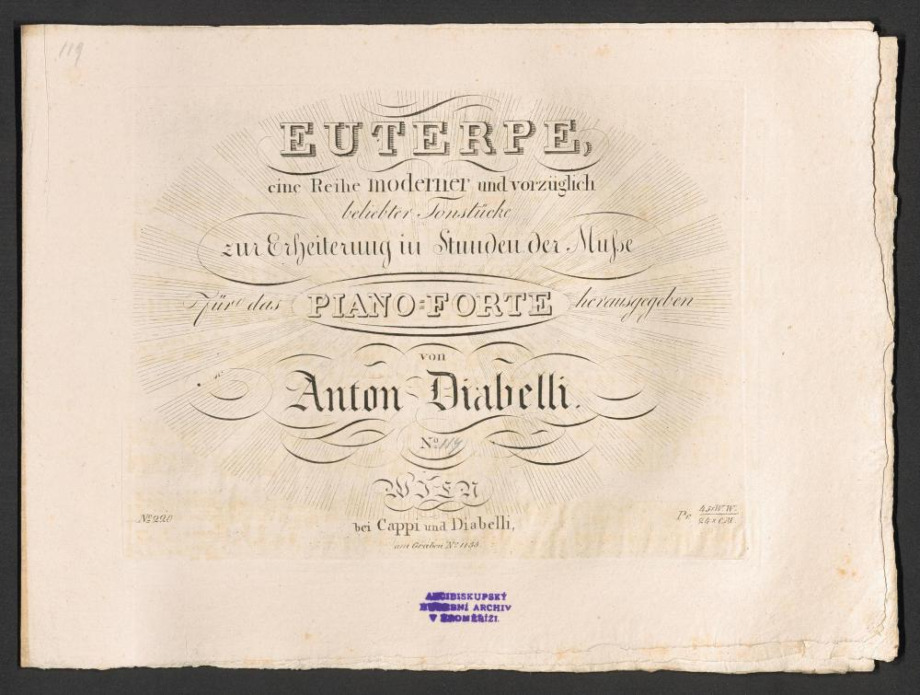 119
EUTERPE,
eine Reihe moderner und vorzüglich
beliebter Tonstücke
zur Erheiterung in Stunden der Muße
Für das PIANO=FORTE herausgegeben
von
Anton Diabelli.
No. 119
WIEN
No. 220
bei Cappi und Diabelli,
am Graben No. 1133
ARCIBISKUPSKÝ
HUDEBNÍ ARCHIV
V KROMĚŘÍŽI.